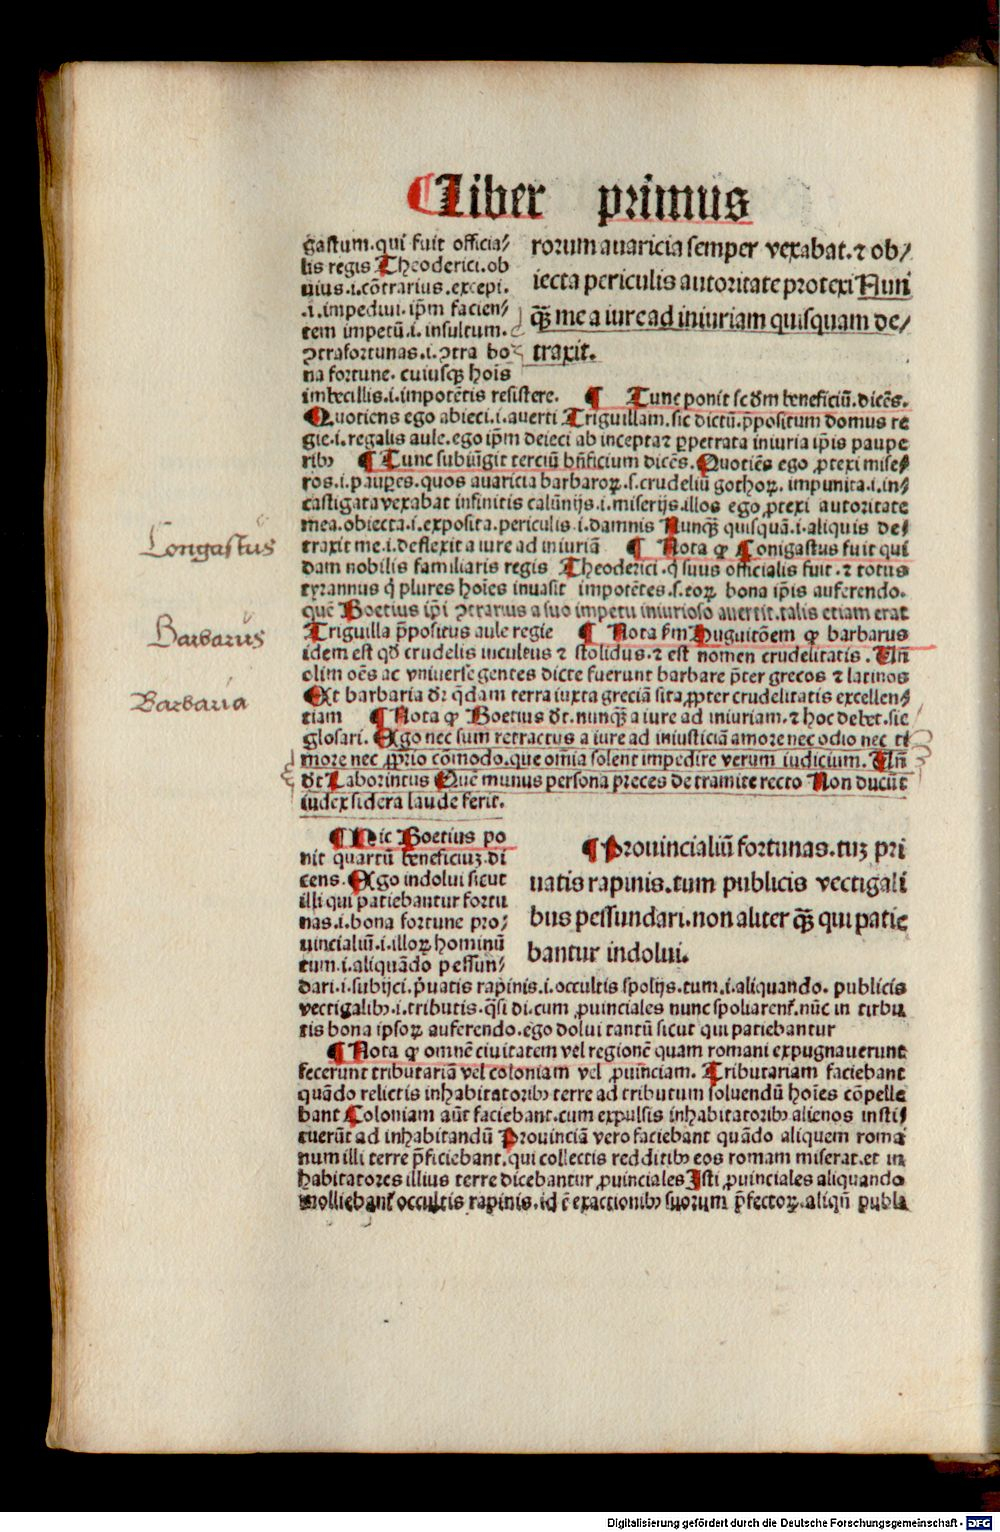 ¶ Liber primus
gastum.qui fuit officia⸗
lis regis Theoderici.ob
uius.i.cōtrarius.excepi.
.i.impediui.ip̄m facien⸗
tem impetū.i.insultum.
ꝯtrafortunas.i.ꝯtra bo⸗
na fortune. cuiusqꝫ hoīs
rorum auaricia semper vexabat.⁊ ob⸗
iecta periculis autoritate protexi Nun
qꝫ̄ me a iure ad iniuriam quisquam de⸗
traxit.
imbecillis.i.impotētis resistere. ¶ Tunc ponit scd̄m beneficiū.dicēs.
Quotiens ego abieci.i.auerti Triguillam.sic dictū.p̄positum domus re
gie.i.regalis aule.ego ip̄m deieci ab incepta ⁊ ꝑpetrata iniuria ip̄is paupe
ribꝰ ¶ Tunc subiūgit terciū bn̄ficium dicēs. Quotiēs ego ꝓtexi mise⸗
ros.i.pauꝑes.quos auaricia barbaroꝝ.s.crudeliū gothoꝝ. impunita.i.in⸗
castigata vexabat infinitis calūnijs.i.miserijs.illos ego ꝓtexi autoritate
mea.obiecta.i.exposita.periculis.i.damnis Nunqꝫ̄ quisquā.i.aliquis de⸗
traxit me.i.deflexit a iure ad iniuriā ¶ Nota ꝙ Conigastus fuit qui
dam nobilis familiaris regis Theoderici.q̇ suus officialis fuit.⁊ totus
tyrannus q̇ plures hoīes inuasit impotētes.s.eoꝝ bona ip̄is auferendo.
quē Boetius ip̄i ꝯtrarius a suo impetu iniurioso auertit.talis etiam erat
Triguilla p̄positus aule regie ¶ Nota scd̄m Huguitōem ꝙ barbarus
idem est qd̄ crudelis incultus ⁊ stolidus.⁊ est nomen crudelitatis. Un̄
olim oēs ac vniuerse gentes dicte fuerunt barbare p̄ter grecos ⁊ latinos
Et barbaria dr̄ q̄dam terra iuxta greciā sita ꝓpter crudelitatis excellen⸗
tiam ¶ Nota ꝙ Boetius dt̄.nunqꝫ̄ a iure ad iniuriam.⁊ hoc debet.sic
glosari. Ego nec sum retractus a iure ad iniusticiā amore nec odio nec ti
more nec ꝓprio cōmodo.que om̄ia solent impedire verum iudicium. Un̄
dt̄ Laborintus Quē munus persona preces de tramite recto Non ducūt
iudex sidera laude ferit.
¶ Hic Boetius po
nit quartū beneficiuꝫ.di
cens. Ego indolui sicut
illi qui patiebantur fortu
nas.i.bona fortune pro⸗
uincialiū.i.illoꝝ hominū
tum.i.aliquādo pessun⸗
¶ Prouincialiū fortunas.tuꝫ pri
uatis rapinis.tum publicis vectigali
bus pessundari.non aliter qꝫ̄ qui patie
bantur indolui.
dari.i.subijci.p̄uatis rapinis.i.occultis spolijs.tum.i.aliquando. publicis
vectigalibꝰ.i.tributis.q̄si di.cum ꝓuinciales nunc spoliarent̄.nūc in tribu
tis bona ipsoꝝ auferendo.ego dolui tantū sicut qui patiebantur
¶ Nota ꝙ omnē ciuitatem vel regionē quam romani expugnauerunt
fecerunt tributariā vel coloniam vel ꝓuinciam. Tributariam faciebant
quādo relictis inhabitatoribꝰ terre ad tributum soluendū hoīes cōpelle
bant Coloniam aūt faciebant.cum expulsis inhabitatoribꝰ alienos insti⸗
tuerūt ad inhabitandū Prouinciā vero faciebant quādo aliquem roma
num illi terre p̄ficiebant.qui collectis redditibꝰ eos romam miserat.et in
habitatores illius terre dicebantur ꝓuinciales Isti ꝓuinciales aliquando
molliebant̄ occultis rapinis.id ē exactionibꝰ suorum p̄fectoꝝ.aliqn̄ publi
Longastus
Barbarus
Barbaria
Digitalisierung gefördert durch die Deutsche Forschungsgemeinschaft - DFG